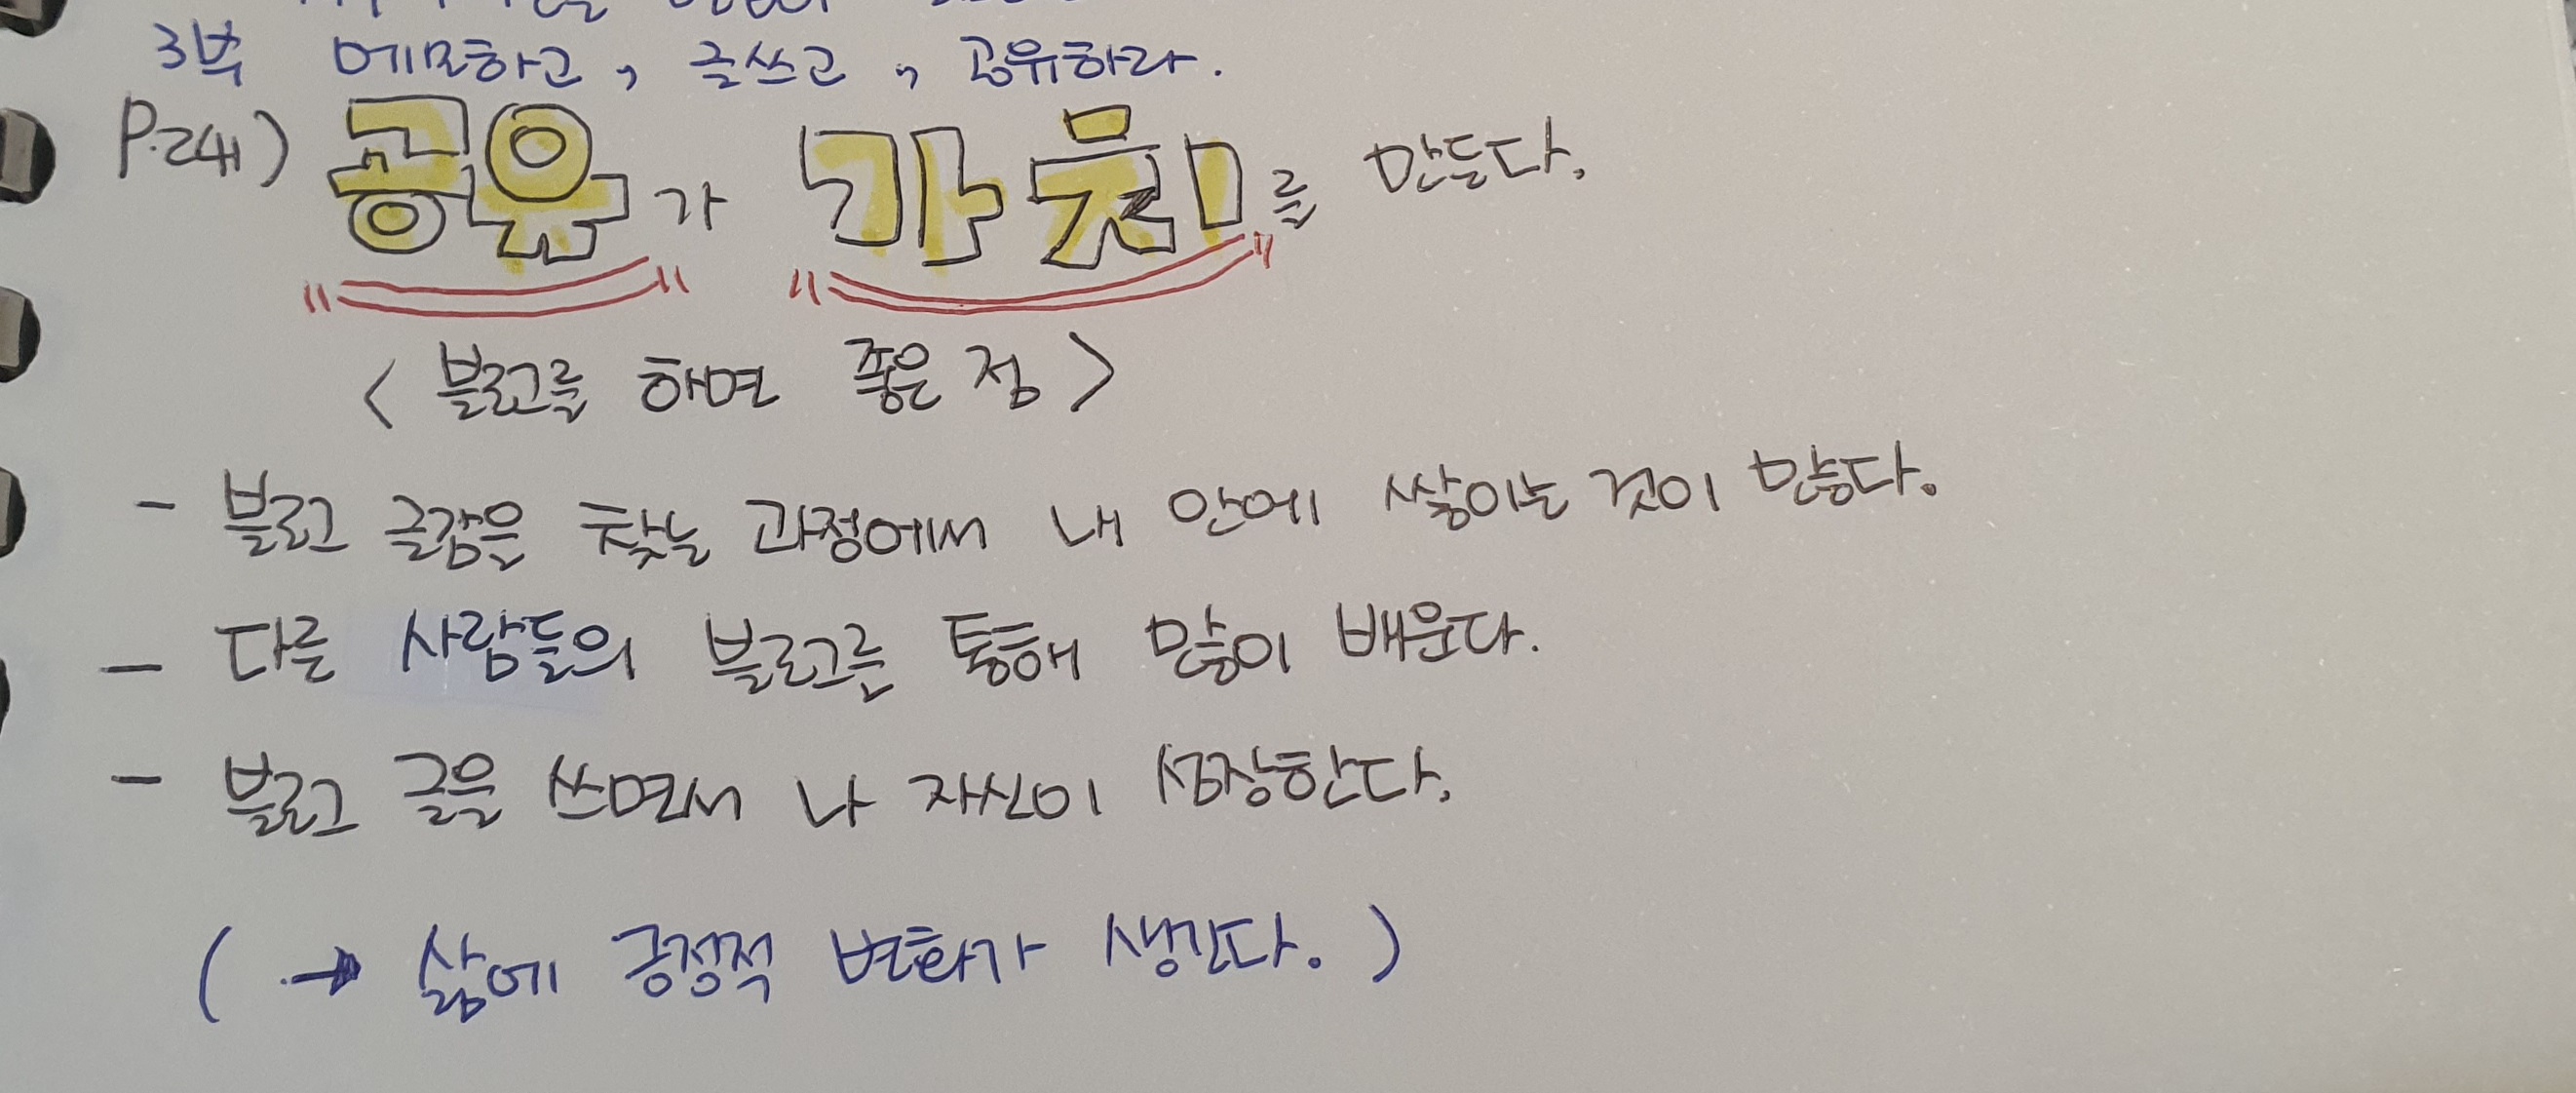 3부 메모하고, 글쓰고, 공유하라.
P.241) 공유가 가치를 만든다.
< 블로그를 하면 좋은 점 >
- 블로그 글감은 찾는 과정에서 내 안에 쌓이는 것이 많다.
- 다른 사람들의 블로그를 통해 많이 배운다.
- 블로그 글을 쓰면서 나 자신이 성장한다.
( → 삶에 긍정적 변화가 생긴다. )